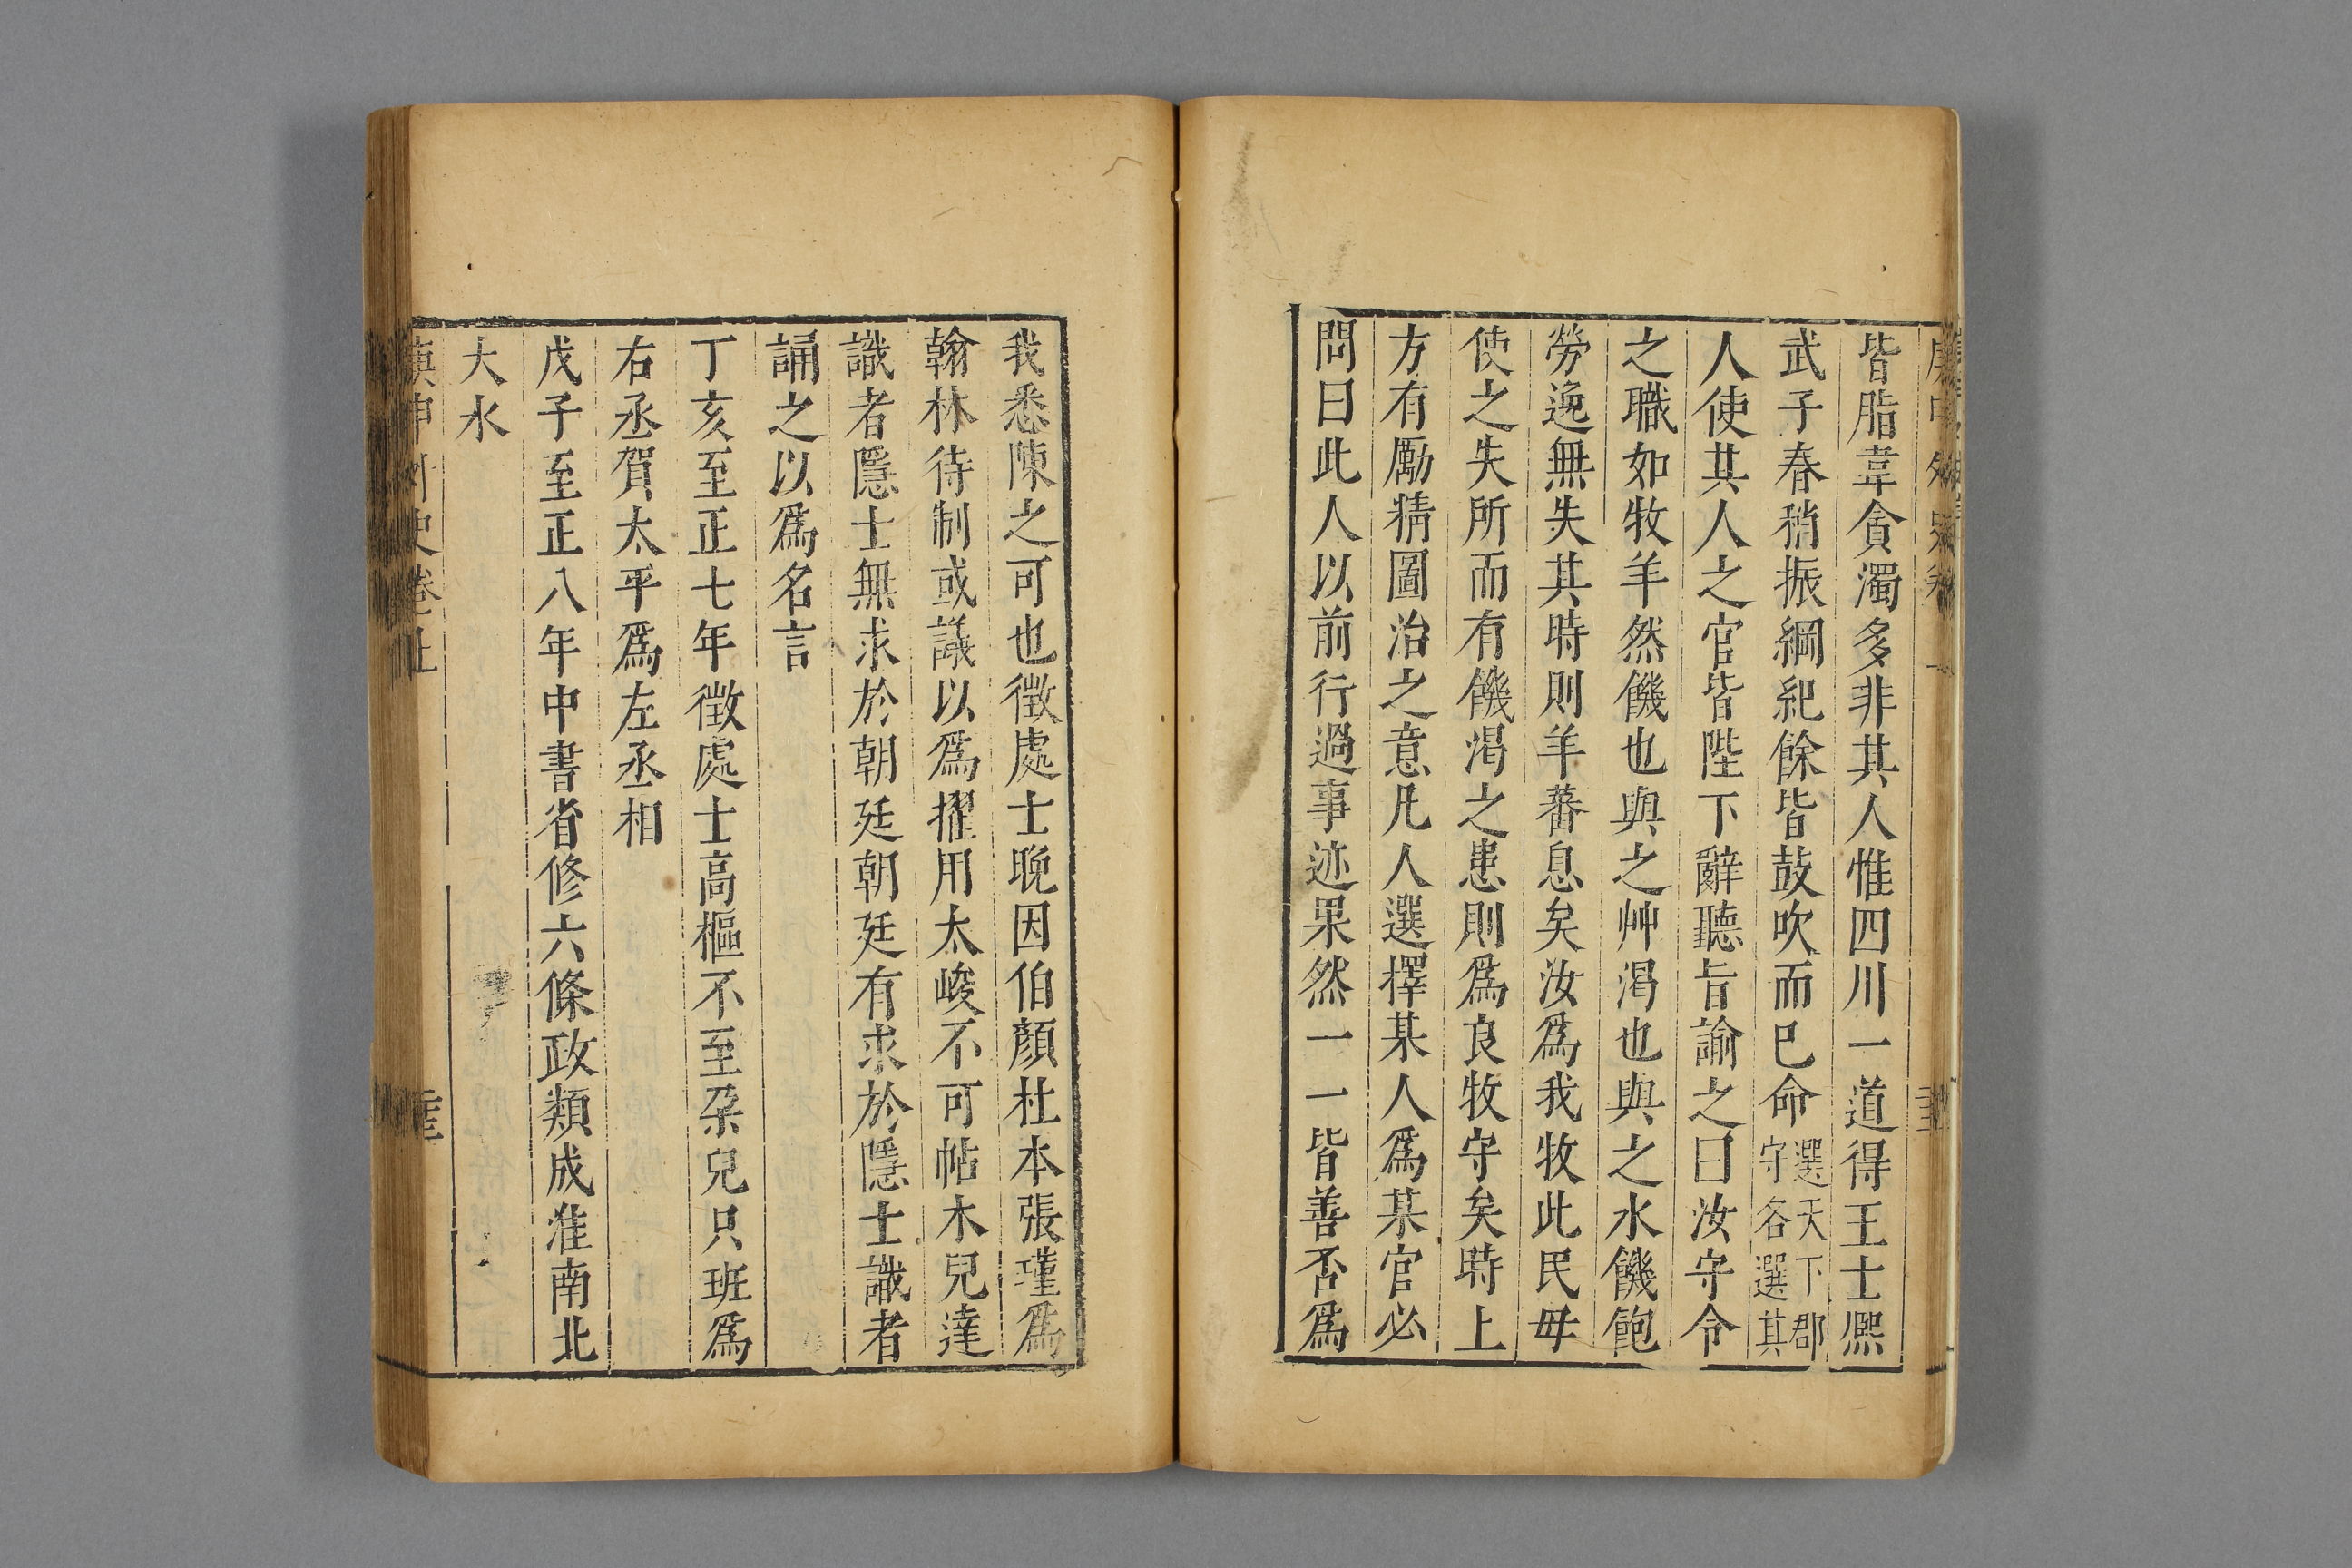 皆脂韋貪濁多非其人惟四川一道得王士熈
武子春稍振綱紀餘皆鼓吹而已命選天下郡守各選其
人使其人之官皆陛下辭聽旨諭之曰汝守令
之職如牧羊然饑也與之艸渴也與之水饑飽
勞逸無失其時則羊蕃息矣汝爲我牧此民毋
使之失所而有饑渴之患則爲良牧守矣時上
方有勵精圖治之意凡人選擇某人爲某官必
問曰此人以前行過事迹果然一一皆善否爲
我悉陳之可也徵處士脫因伯顏杜本張瑾爲
翰林待制或議以爲擢用太峻不可帖木兒達
識者隱士無求於朝廷朝廷有求於隱士識者
誦之以爲名言
丁亥至正七年徵處士高樞不至朶兒只班爲
右丞賀太平爲左丞相
戊子至正八年中書省修六條政類成淮南北
大水
庚申外史卷上